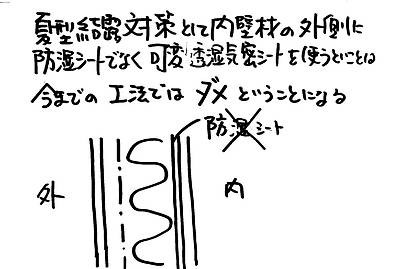 夏型結露対策として内壁材の外側に
防湿シートでなく可変透湿気密シートを使うということは
今までの工法ではダメということになる
防湿シート
外
内